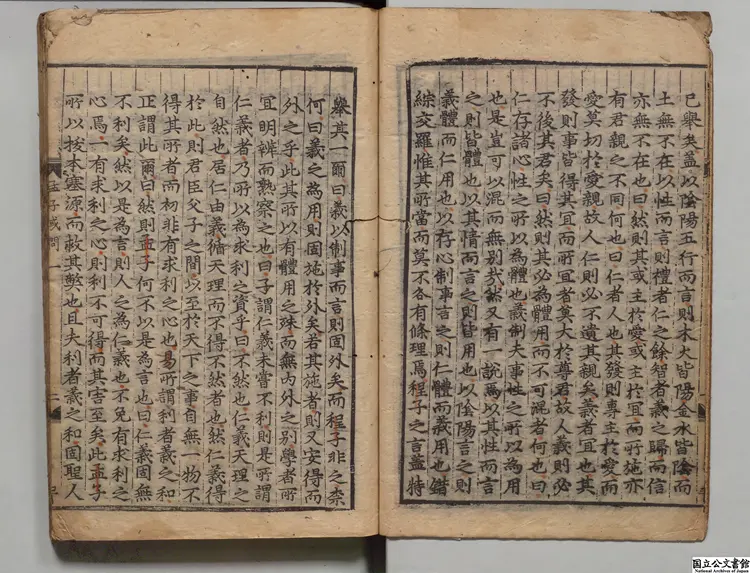 已舉矣盖以陰陽五行而言則木火皆陽金水皆陰而
土無不在以性而言則禮者仁之餘智者義之歸而信
亦無不在也曰然則其或主於愛或主於宜而所施亦
有君親之不同何也曰仁者人也其發則專主於愛而
愛莫切於愛親故人仁則必不遺其親矣義者宜也其
發則事皆得其宜而所宜者莫大於尊君故人義則必
不後其君矣曰然則其必為體用而不可混者何也曰
仁存諸心性之所以為體也義制夫事性之所以為用
也是豈可以混而無別哉然又有一說焉以其性而言
之則皆體也以其情而言之則皆用也以陰陽言之則
義體而仁用也以存心制事言之則仁體而義用也錯
綜交羅惟其所當而莫不各有條理焉程子之言盖特
舉其一爾曰義以制事而言則固外矣而程子非之柰
何曰義之為用則固施於外矣若其施者則又安得而
外之乎此其所以有體用之殊而無内外之別學者所
宜明辨而熟察之也曰子謂仁義未嘗不利則是所謂
仁義者乃所以為求利之資乎曰不然也仁義天理之
自然也居仁由義循天理而不得不然者也然仁義得
於此則君臣父子之間以至於天下之事自無一物不
得其所者而初非有求利之心也易所謂利者義之和
正謂此爾曰然則孟子何不以是為言也曰仁義固無
不利矣然以是為言則人之為仁義也不免有求利之
心焉一有求利之心則利不可得而其害至矣此孟子
所以拔本塞源而救其弊也且夫利者義之和固聖人
孟子或問一 二
国立公文書館
National Archives of Japan